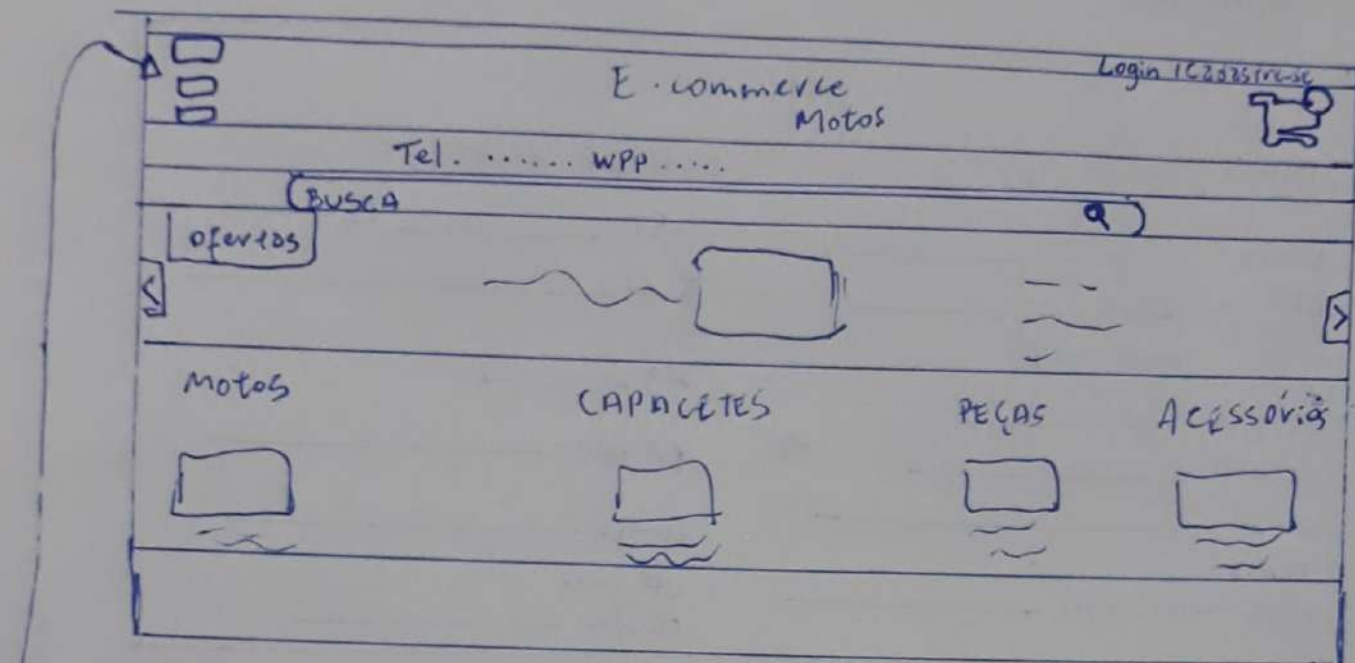 Login | Cadastre-se
E-commerce
Motos
Tel. ....... WPP .....
BUSCA
ofertas
<
>
Motos
CAPACETES
PEÇAS
Acessórios